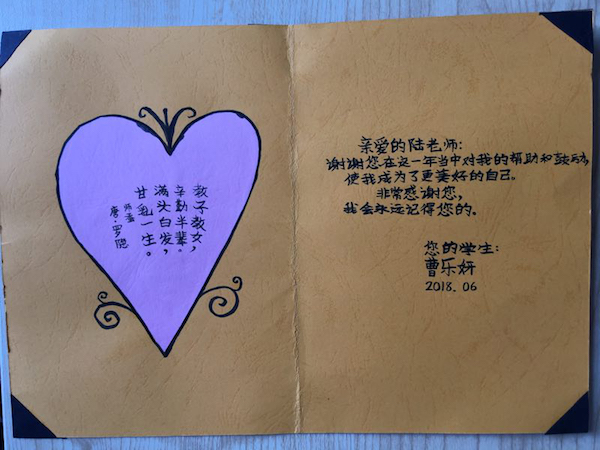 教子教女,
辛勤半辈。
满头白发,
甘乳一生。
唐·罗隐
亲爱的陆老师:
谢谢您在这一年当中对我的帮助和鼓动,
使我成为了更美好的自己。
非常感谢您,
我会永远记得您的。
您的学生:
曹乐妍
2018.06